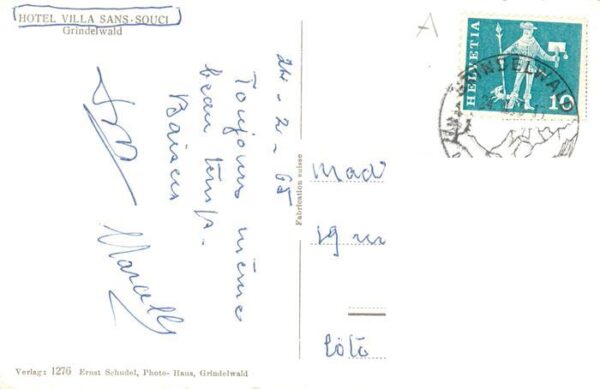 HOTEL VILLA SANS-SOUCI
Grindelwald
24-2-65
Toujours même
beau temps.
Baisers
Fabrication suisse
Mad
19 
A
HELVETIA
10
GRINDELWALD
Verlag: 1276 Ernst Schudel, Photo-Haus, Grindelwald